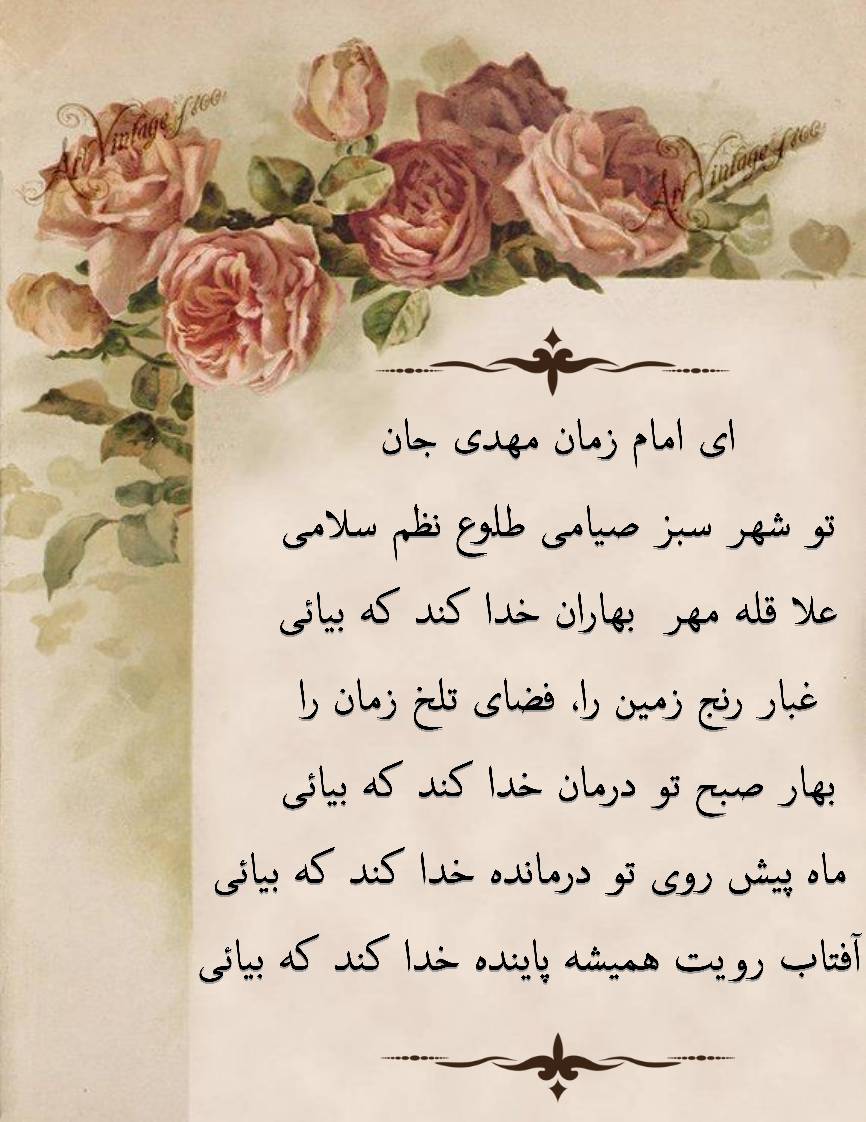 Art Vintage f100
Art Vintage f100
ای امام زمان مهدی جان
تو شهر سبز صیامی طلوع نظم سلامی
علا قله مهر بهاران خدا کند که بیائی
غبار رنج زمین را، فضای تلخ زمان را
بهار صبح تو درمان خدا کند که بیائی
ماه پیش روی تو درمانده خدا کند که بیائی
آفتاب رویت همیشه پاینده خدا کند که بیائی